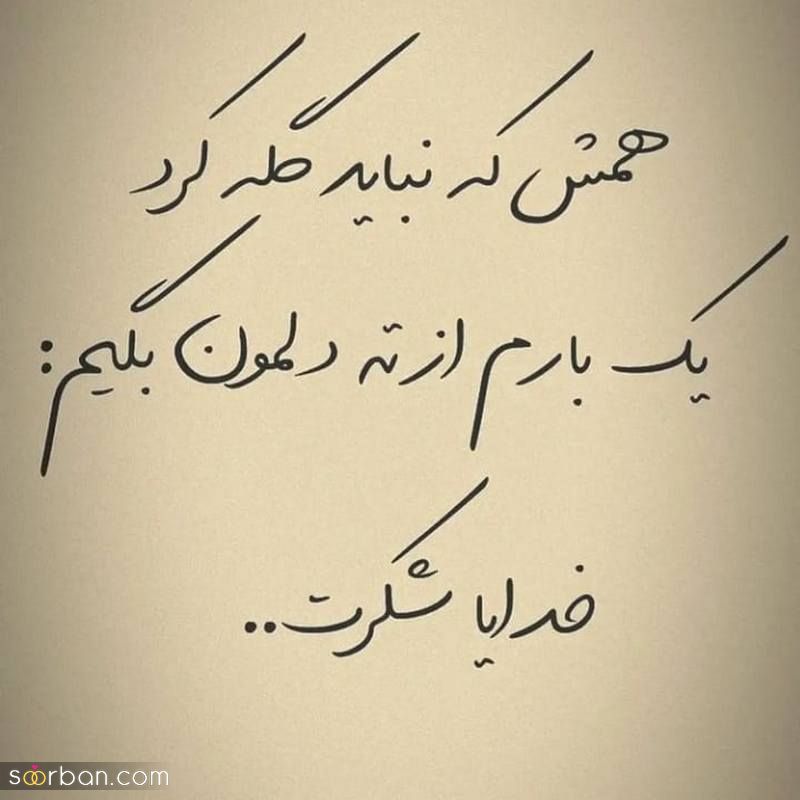 همش که نباید گله کرد
یک بارم از ته دلمون بگیم:
خدایا شکرت..
soorban.com